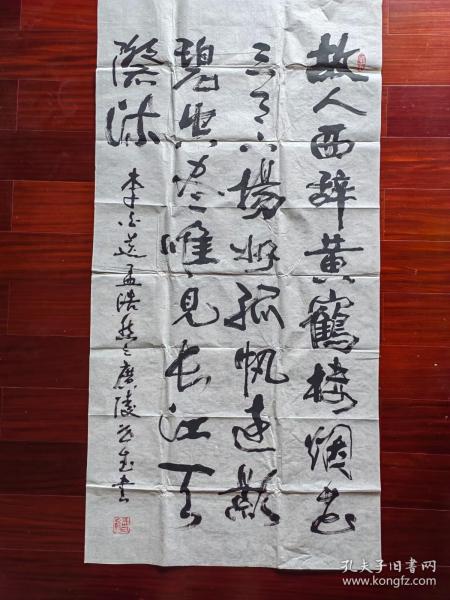 故人西辞黄鶴楼烟花
三月下揚州孤帆远影
碧空尽唯見长江天
際流
李白送孟浩然之廣陵 书
孔夫子旧书网
www.kongfz.com